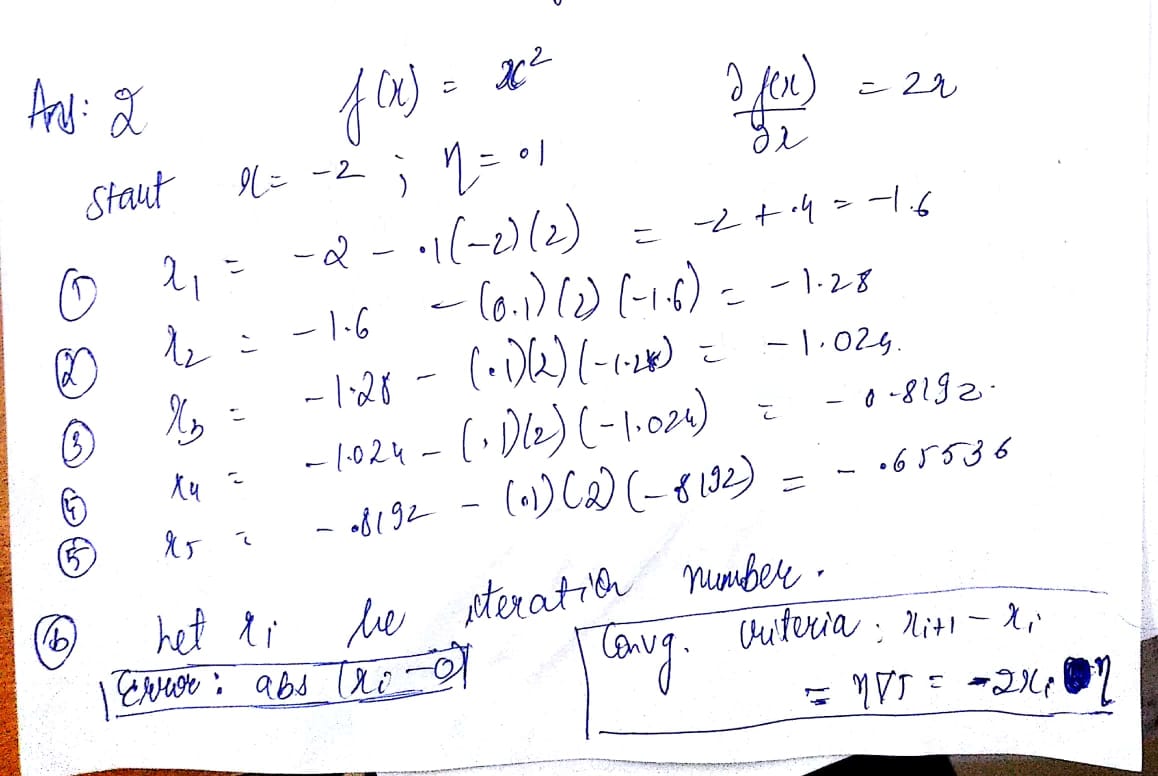 Ans: 2 f(x) = x² ∂f(x)/∂x = 2x
Start x = -2 ; η = .1
① x₁ = -2 - .1(-2)(2) = -2 + .4 = -1.6
② x₂ = -1.6 - (0.1)(2)(-1.6) = -1.28
③ x₃ = -1.28 - (.1)(2)(-1.28) = -1.024.
④ x₄ = -1.024 - (.1)(2)(-1.024) = -0.8192.
⑤ x₅ = -.8192 - (.1)(2)(-8192) = -.65536
⑥ Let xᵢ be iteration number.
Error: abs (xᵢ - 0)
Convg. criteria: xᵢ₊₁ - xᵢ
= η∇J = -2xᵢ η